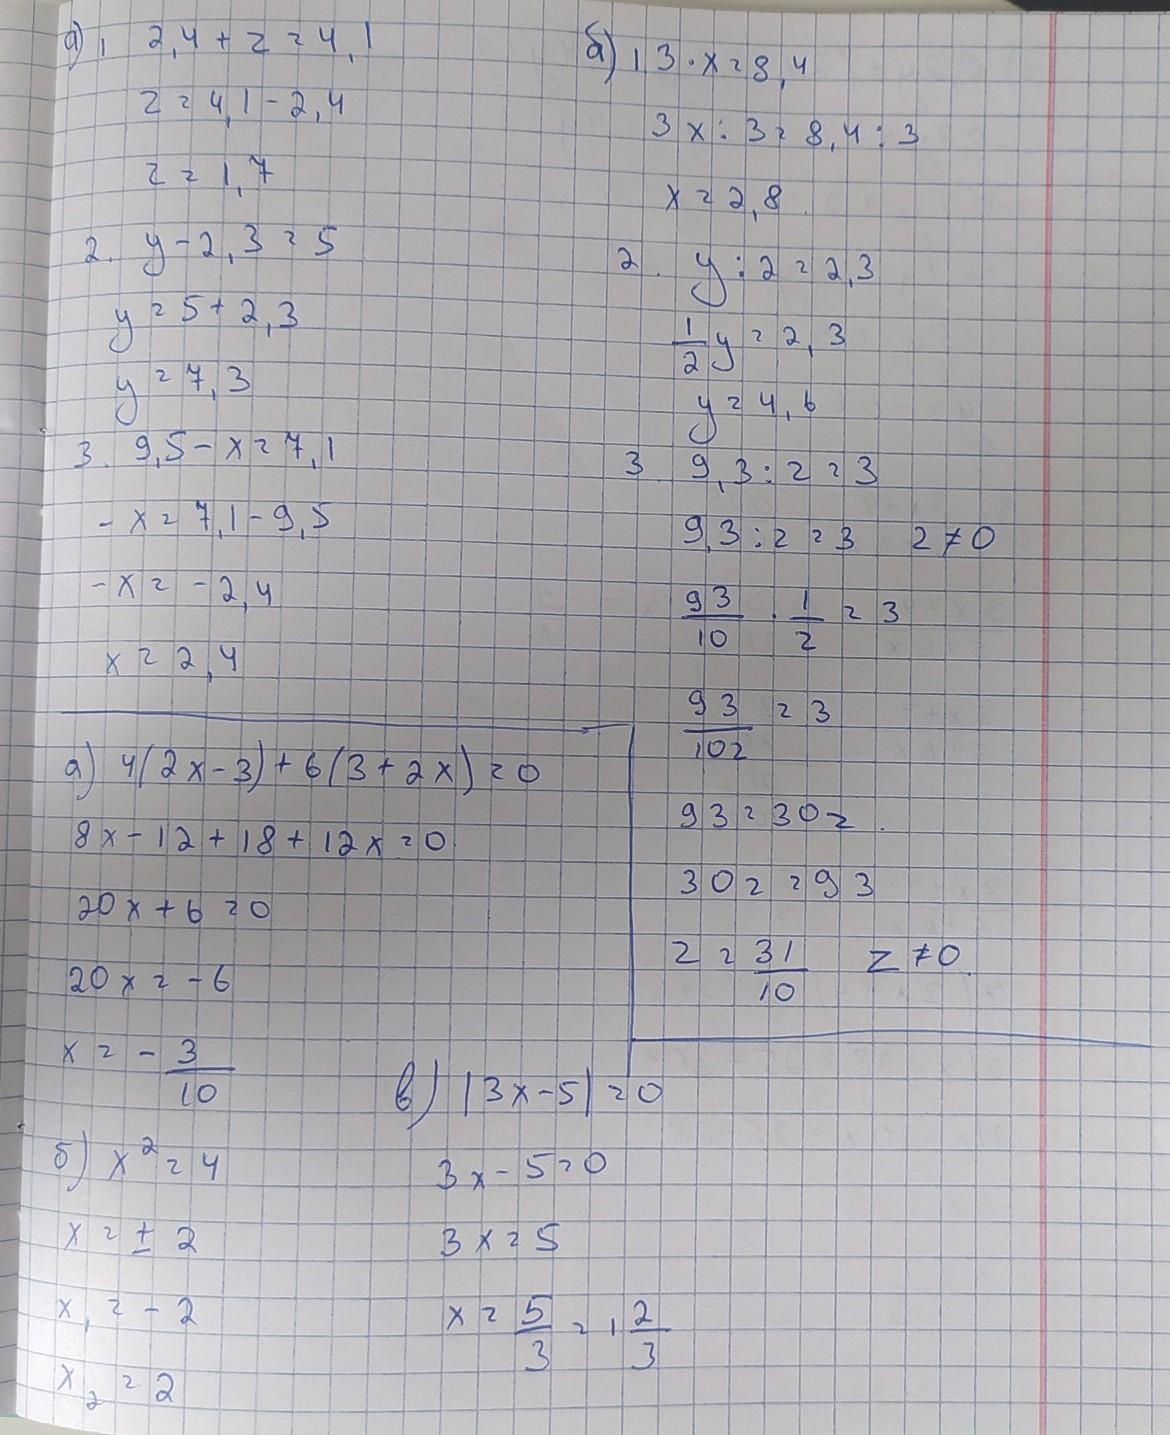 а) 1 2,4 + z = 4,1
z = 4,1 - 2,4
z = 1,7
2. y - 2,3 = 5
y = 5 + 2,3
y = 7,3
3. 9,5 - x = 7,1
- x = 7,1 - 9,5
- x = - 2,4
x = 2,4
б) 1 3 · x = 8,4
3 x : 3 = 8,4 : 3
x = 2,8
2. y : 2 = 2,3
1/2 y = 2,3
y = 4,6
3 9,3 : z = 3
9,3 : z = 3 z ≠ 0
93/10 · 1/z = 3
93/10z = 3
93 = 30z
30z = 93
z = 31/10 z ≠ 0
а) 4(2x - 3) + 6(3 + 2x) = 0
8x - 12 + 18 + 12x = 0
20x + 6 = 0
20x = - 6
x = - 3/10
б) x² = 4
x = ± 2
x₁ = - 2
x₂ = 2
в) |3x - 5| = 0
3x - 5 = 0
3x = 5
x = 5/3 = 1 2/3